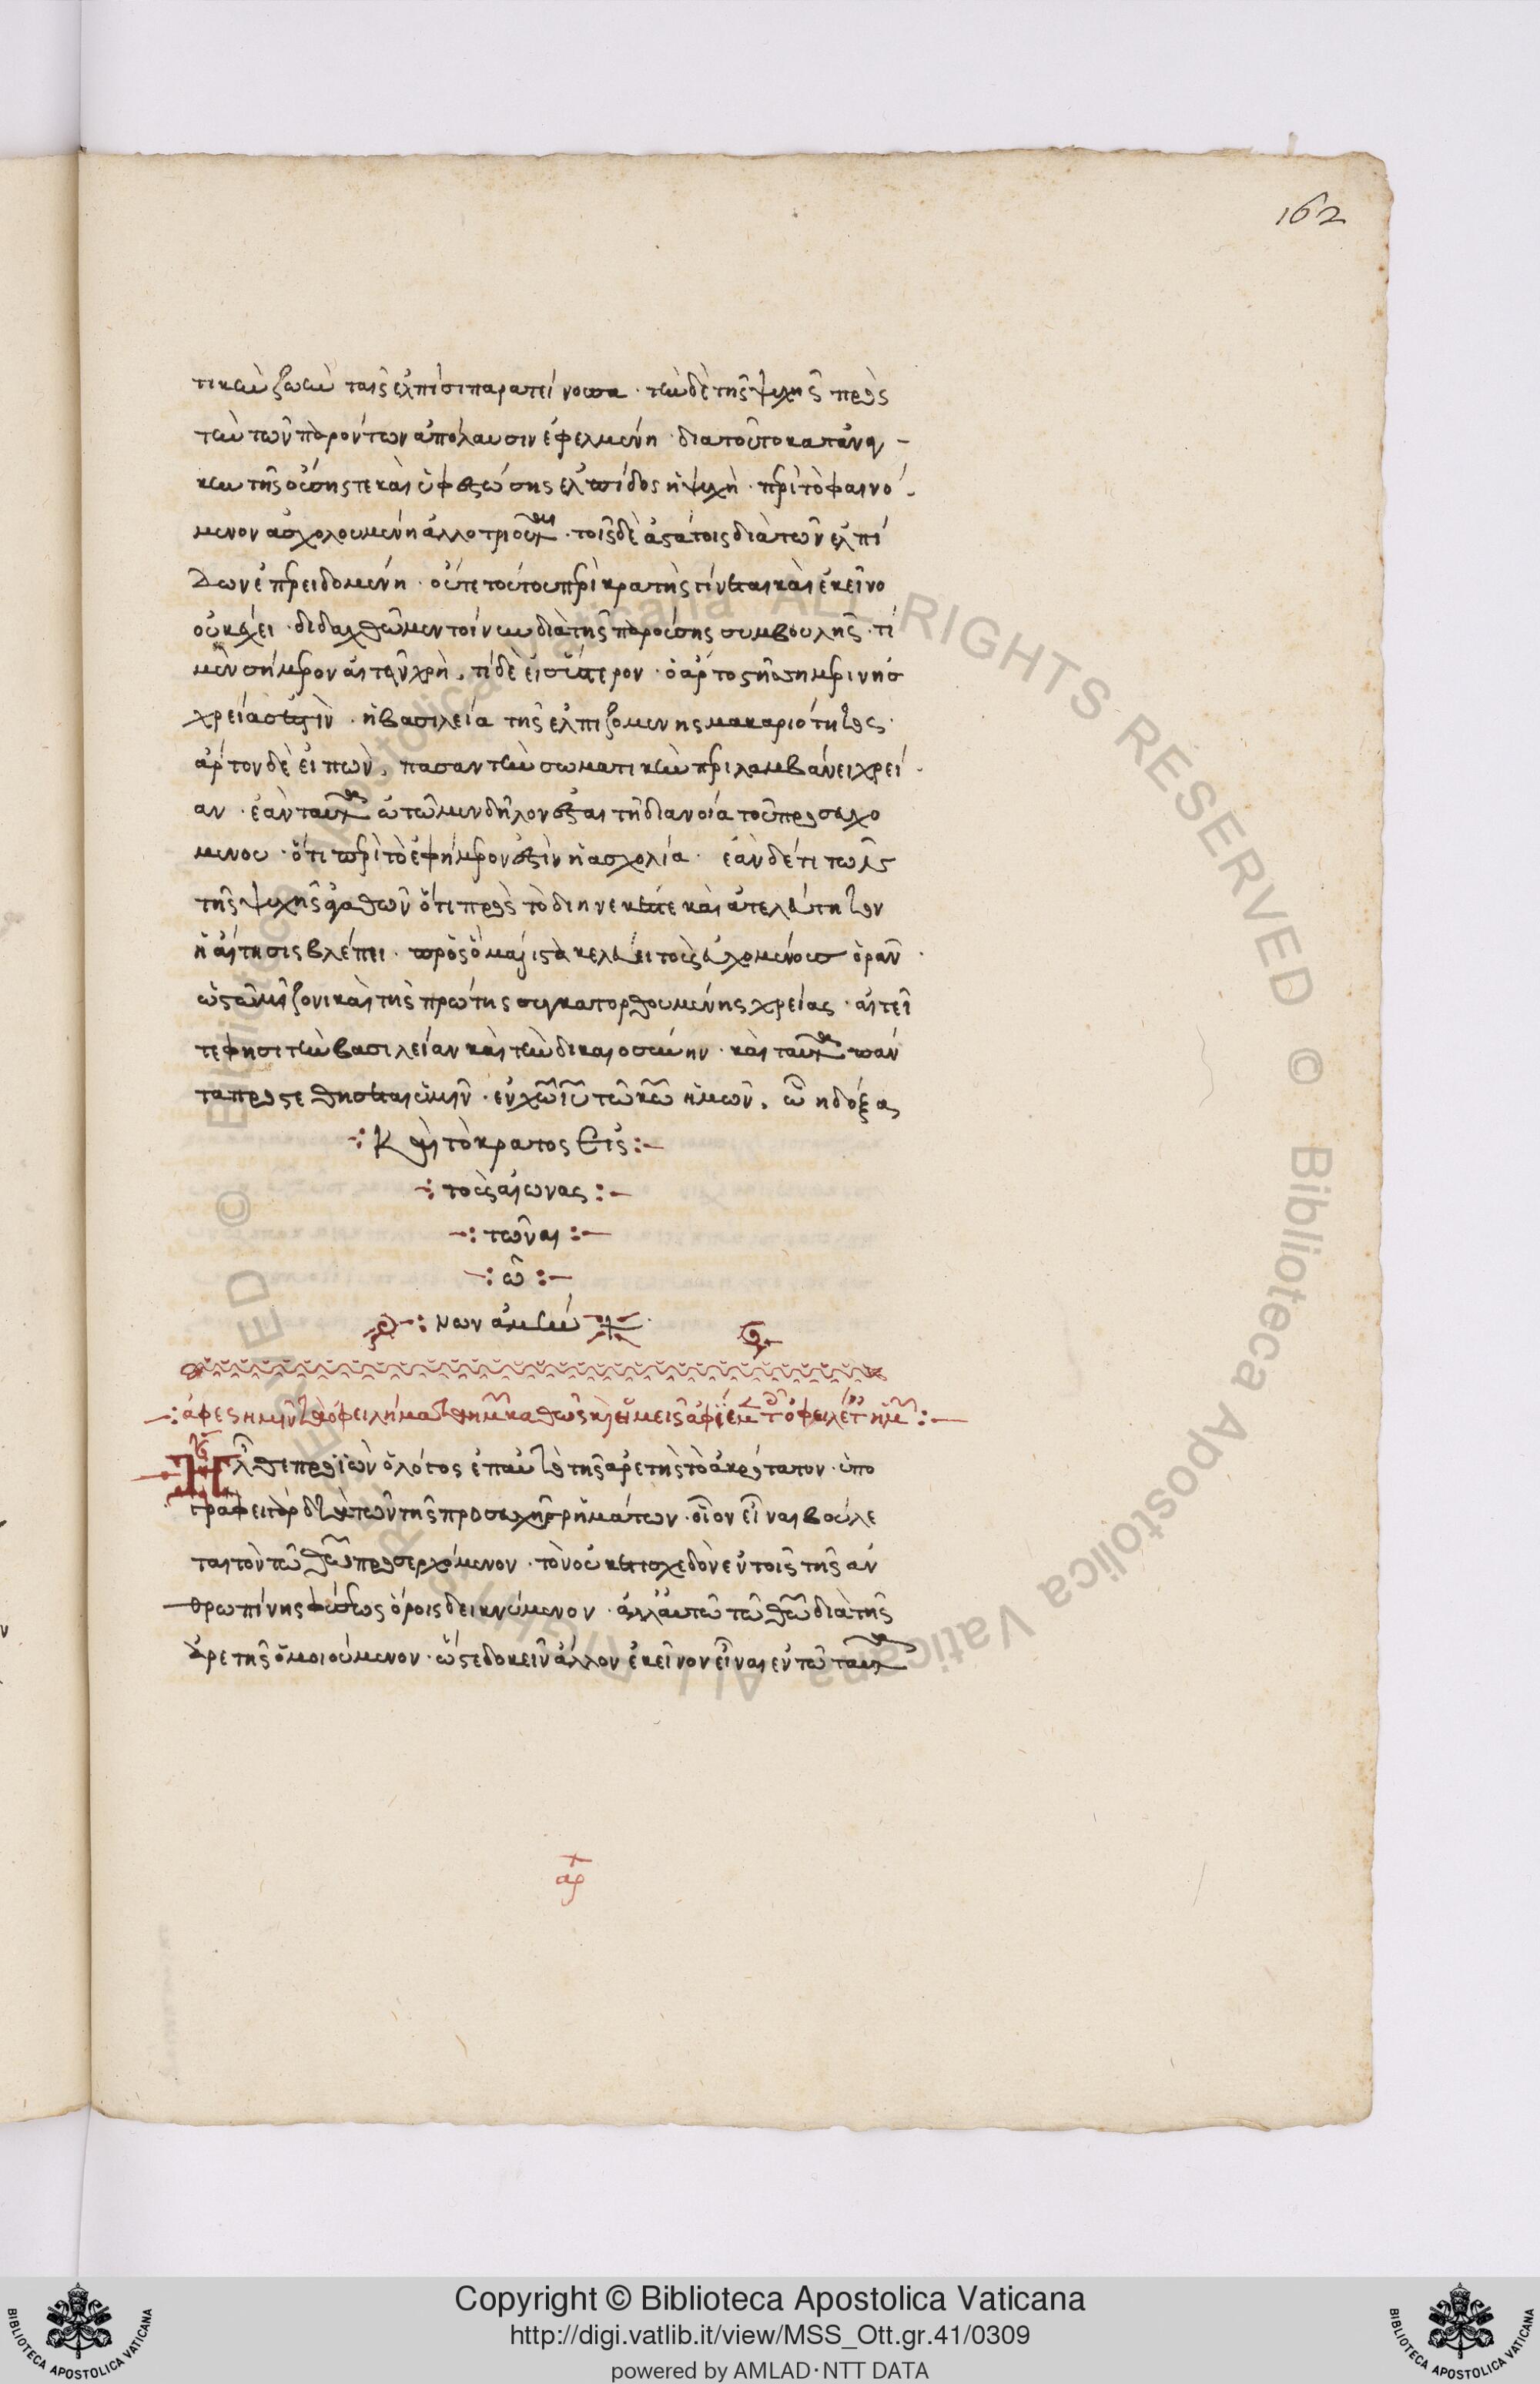 162
τικὴν ζωὴν ταῖς ἐλπίσι παρατείνουσα · τὴν δὲ τῆς ψυχῆς πρὸς
τὴν τῶν παρόντων ἀπόλαυσιν ἐφελκομένη · διατοῦτο καταναγ-
κην τῆς οὔσης τε καὶ ὑφεστώσης ἐλπίδος ἡ ψυχὴ · περὶ τὸ φαινό-
μενον ἀσχολουμένη ἀλλοτριοῦται · τοῖς δὲ ἀστάτοις διὰ τῶν ἐλπί
δων ἐπερειδομένη · οὔτε τούτου περικρατὴς γίνεται καὶ ἐκεῖνο
οὐκ ἔχει · διδαχθῶμεν τοίνυν διὰ τῆς παρούσης συμβουλῆς · τί
μὲν σήμερον αἰτεῖν χρὴ, τί δὲ εἰσύστερον · ὁ ἄρτος τῆς σημερινῆς
χρείας ἐστὶν · ἡ βασιλεία τῆς ἐλπιζομένης μακαριότητος ·
ἄρτον δὲ εἰπὼν, πᾶσαν τὴν σωματικὴν περιλαμβάνει χρεί-
αν · ἐὰν ταῦτα αἰτῶμεν δῆλον ἔσται τῇ διανοίᾳ τοῦ προσευχο
μένου · ὅτι περὶ τὸ ἐφήμερον ἐστὶν ἡ ἀσχολία · ἐὰν δέ τι τῶν
τῆς ψυχῆς ἀγαθῶν ὅτι πρὸς τὸ διηνεκές τε καὶ ἀτελεύτητον
ἡ αἴτησις βλέπει · πρὸς ὃ μάλιστα κελεύει τοὺς εὐχομένους ὁρᾶν ·
ὡς τῷ μείζονι καὶ τῆς πρώτης συγκατορθουμένης χρείας · αἰτεῖ
τε φησὶ τὴν βασιλείαν καὶ τὴν δικαιοσύνην · καὶ ταῦτα πάν
τα προστεθήσεται ὑμῖν · ἐν χω ιυ τῶ κω ἡμῶν, ὧ ἡ δόξα
-: Καὶ τὸ κράτος εἰς :-
-: τοὺς αἰῶνας :-
-: τῶν αι :-
-: ώ :-
-: νων ἀμήν
-: ἄφες ἡμῖν τὰ ὀφειλήματα ἡμῶν καθὼς καὶ ἡμεῖς ἀφίεμεν τοῖς ὀφειλέταις ἡμῶν :-
Ἦλθε προϊὼν ὁ λόγος ἐπ αὐτὸ τῆς ἀρετῆς τὸ ἀκρότατον · ὑπο
γράφει γὰρ διὰ τῶν τῆς προσευχῆς ῥημάτων · οἷον εἶναι βούλε
ται τὸν τῶ θω προσερχόμενον · τὸν οὐκέτι σχεδὸν ἐν τοῖς τῆς ἀν
θρωπίνης φύσεως ὅροις δεικνύμενον · ἀλλ αὐτῶ τῶ θω διὰ τῆς
ἀρετῆς ὁμοιούμενον · ὥστε δοκεῖν ἄλλον ἐκεῖνον εἶναι ἐν τῶ ταῦτα
Copyright © Biblioteca Apostolica Vaticana
http://digi.vatlib.it/view/MSS_Ott.gr.41/0309
powered by AMLAD·NTT DATA